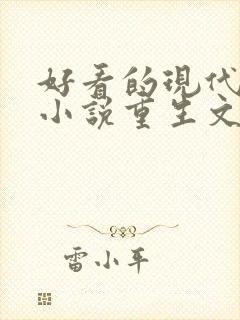 好看的现代
小说重生文
雷小平